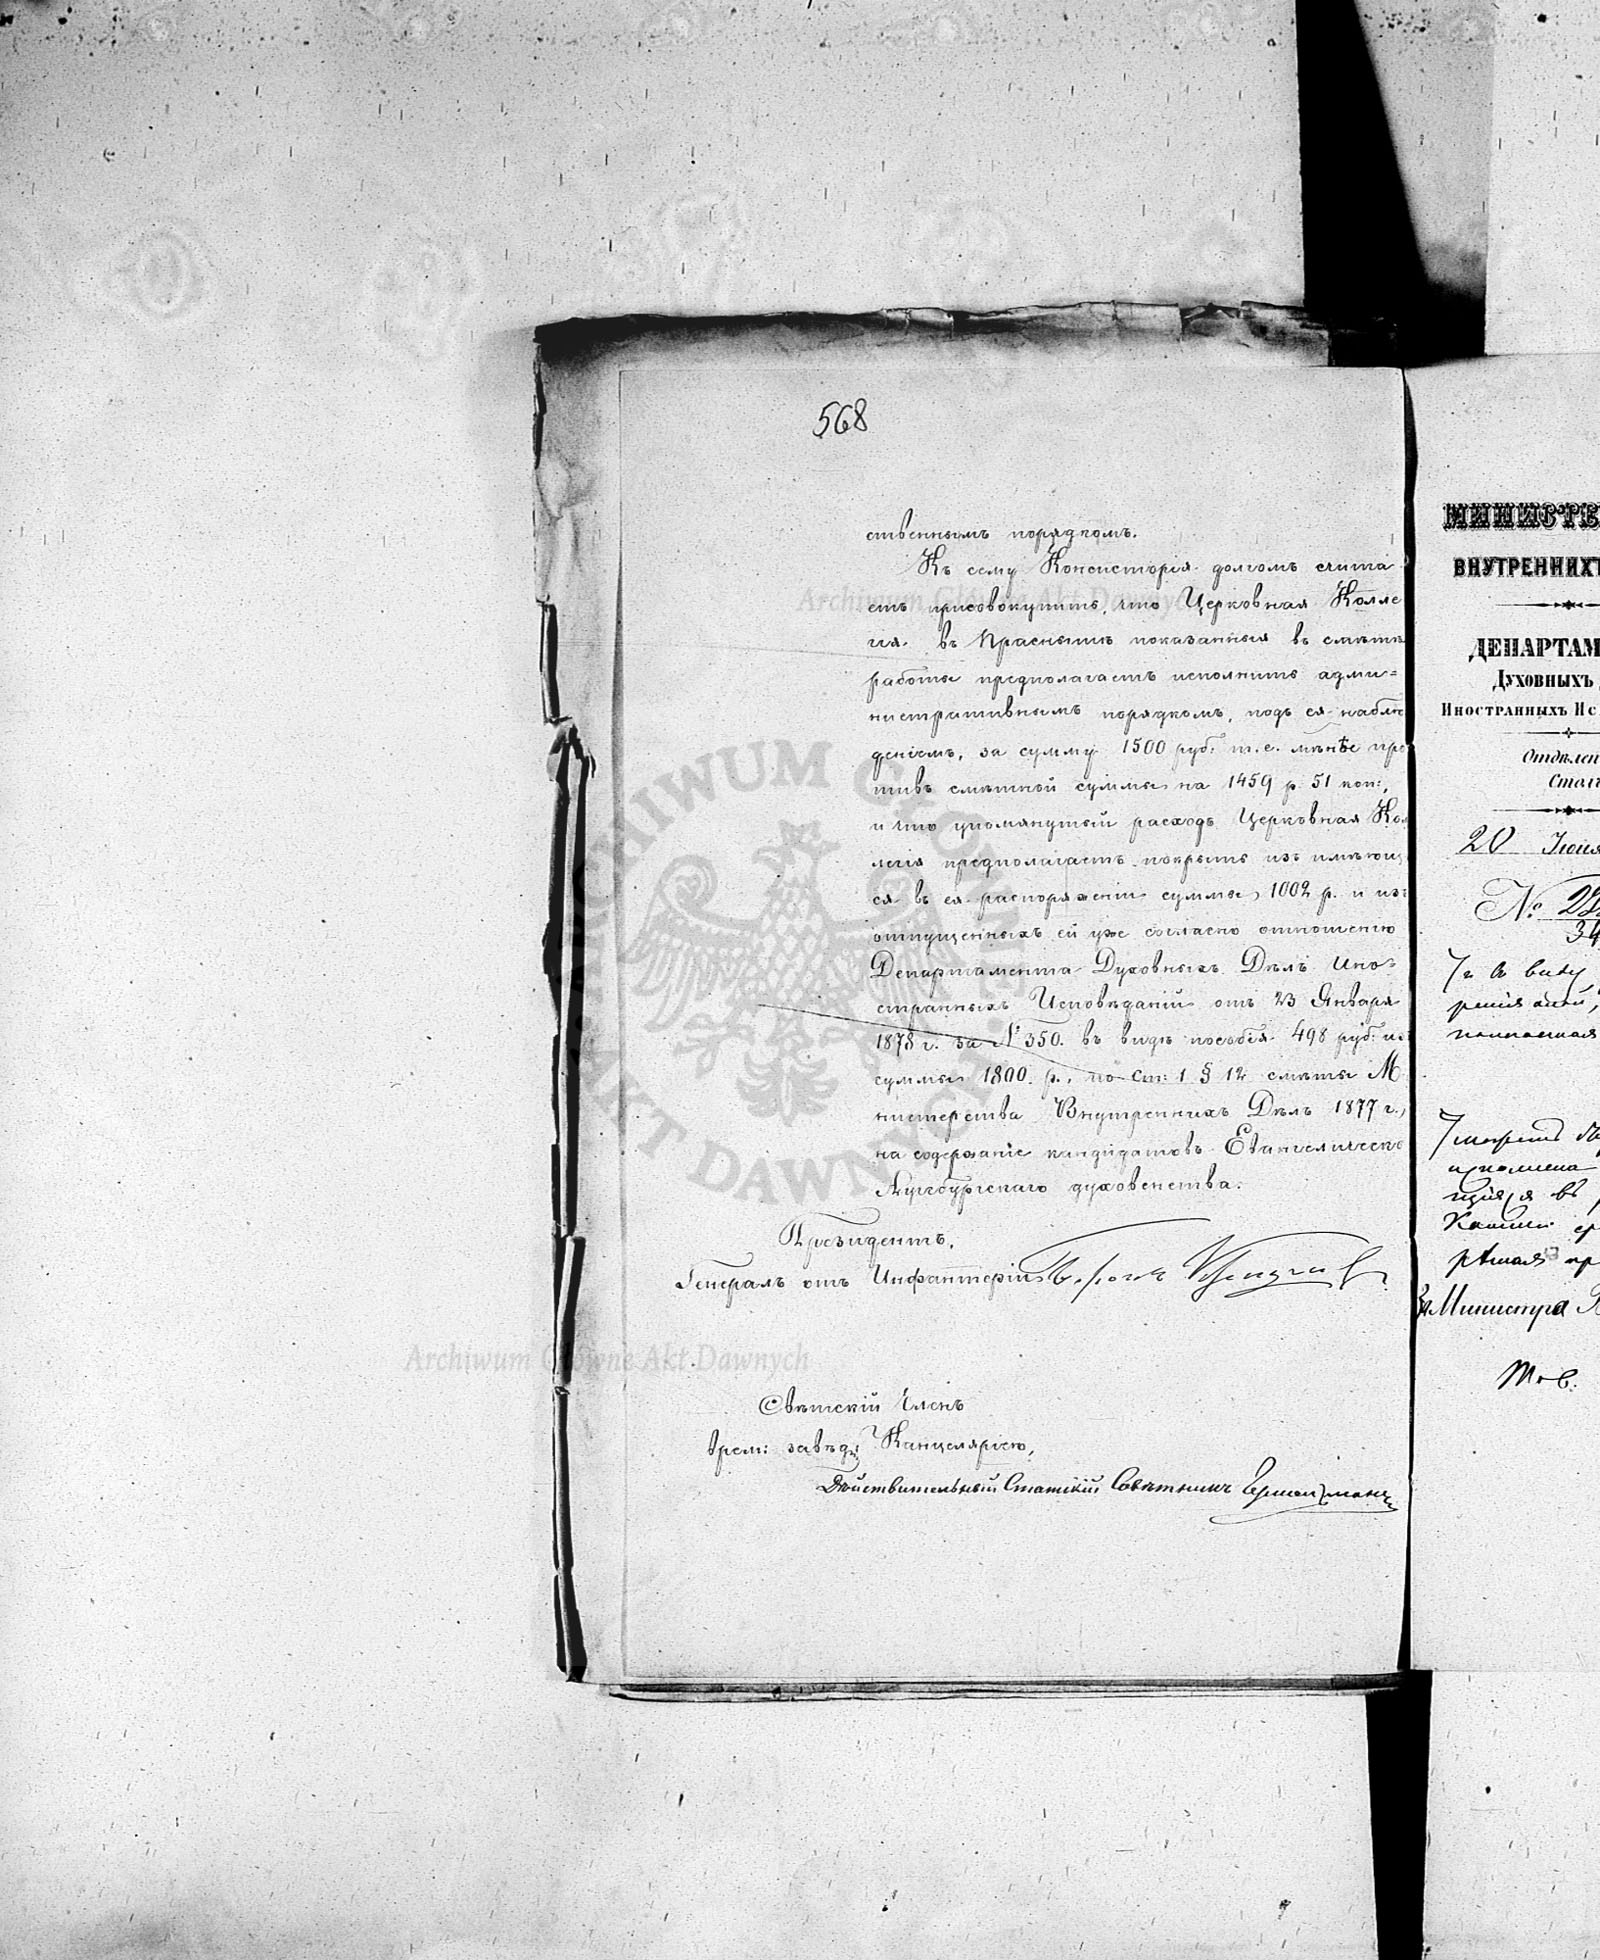 568
ственнымъ порядкомъ.
Къ сему Консисторія долгомъ счита
етъ присовокупить, что Церковная Колле
гія въ Праснышѣ показанныя въ смѣтѣ
работы предполагаетъ исполнить адми=
нистративнымъ порядкомъ, подъ ея наблю
деніемъ, за сумму 1500 руб: т.е. менѣе про
тивъ смѣтной суммы на 1459 р. 51 коп:,
и что упомянутый расходъ Церковная Кол
легія предполагаетъ покрыть изъ имѣющ
ся въ ея распоряженіи суммы, 1002 р. и изъ
отпущенныхъ ей уже согласно отношенію
Департамента Духовныхъ Дѣлъ Ино=
странныхъ Исповѣданій отъ 23 Января
1878 г. за № 350. въ видѣ пособія 498 руб: из
суммы 1800. р., по ст: 1 § 12 смѣты М
нистерства Внутреннихъ Дѣлъ 1877 г.,
на содержаніе кандидатовъ Евангелическо
Аугсбургскаго духовенства.
Президентъ,
Генералъ отъ Инфантеріи
Свѣтскій Членъ
врем: завѣд: Канцеляріею,
Дѣйствительный Статскій Совѣтникъ
МИНИСТЕ
ВНУТРЕННИХЪ
ДЕПАРТАМ
ДУХОВНЫХЪ
ИНОСТРАННЫХЪ ИС
Отдѣлен
Стол
20 Іюня
№
34
въ виду
Министра
Тов.
Archiwum Główne Akt Dawnych
ARCHIWUM GŁÓWNE AKT DAWNYCH
Archiwum Główne Akt Dawnych